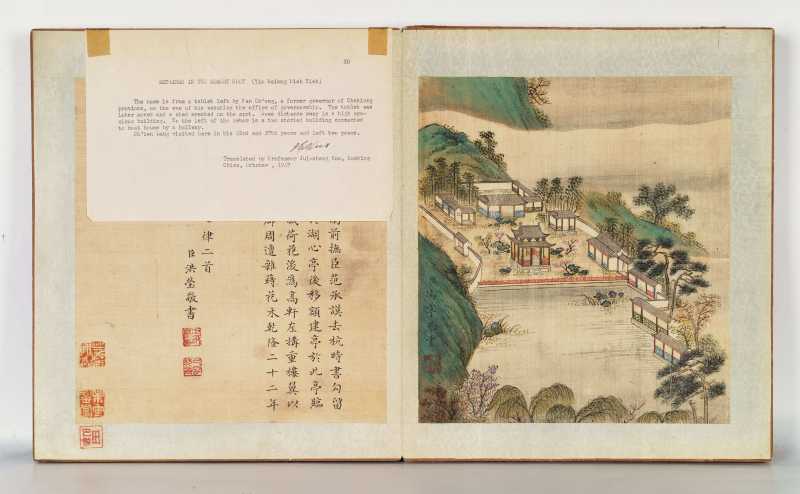 RETAINED IN THE MEMORY SPOT
The name is from a tablet left by Fan Ch'eng, a former governor of Chekiang
province, on the eve of his vacating the office of governorship. The tablet was
later moved and a shed erected on the spot. Some distance away is a high spa-
cious building. To the left of the house is a two storied building connected
to boat house by a hallway.
Ch'ien Lung visited here in his 22nd and 27th years and left two poems.
Translated by Professor Nanking
China, October , 1947
前撫臣范承謨去杭時書勾留
湖心亭後移額建亭於此亭臨
荷花後為高軒左構重樓翼以
廊周遭雜蒔花木乾隆二十二年
律二首
臣洪瑩敬書